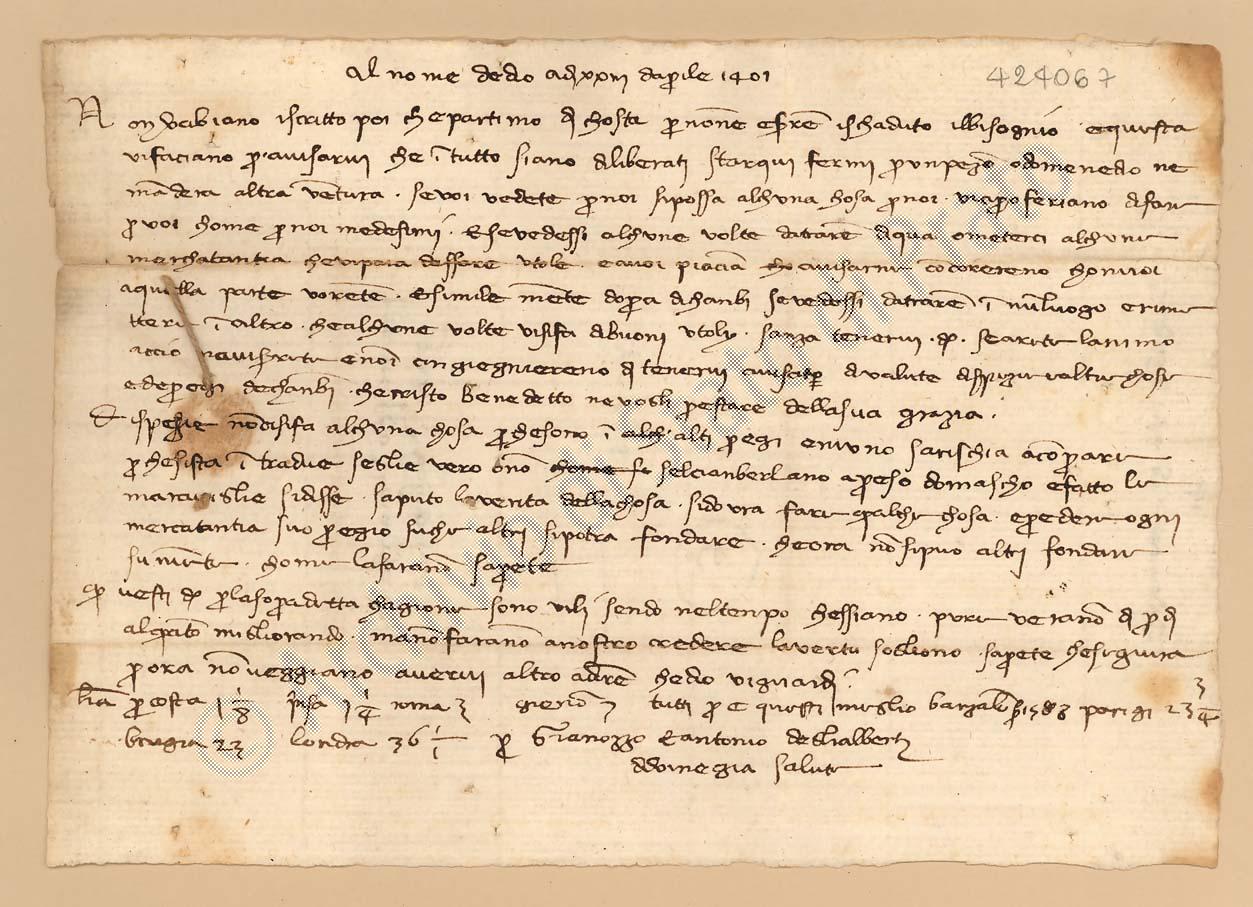 Al nome dedio adj xxiii daprile 1401
424067
Non vabiano iscritto poi chepartimo di chosta per none esserne ischaduto ilbisognio equesta
vifaciano per avisarvi che i tutto siano diliberati starqui fermi per unpezo o domenedio ne
mandera altra ventura. sevoi vedete per noi sipossa alchuna chosa per noi. viproferiano difare
per voi chome per noi medesimi. Esevedessi alchune volte datrarre diqua ometterci alchune
merchatantia chevipaia deffare utole eavoi piacia avisarne concorereno chonvoi
aquella parte vorete. Esimile mente dopera dichanbi sevedessi datrarre i nunluogo erime
ttere i altro. chealchune volte visifa dibuoni utoly. sanza tenervi d. searete lanimo
accio neaviserete enoi cingiegniereno di tenervi avisati per divalute dispezie edaltre chose
edepregi dechanbi. checristo benedetto nevogli prestare dellasua grazia.
Ispezie nondisifa alchuna chosa perchesono i alti pregi eniuno sarischia aconperare
perchesista i tradue seglie vero ono selcianberlano apreso domascho efatto le
maraviglie sidisse. saputo laverita dellachosa. sidovra fare qualche chosa. eprendere ogni
mercatantia suo pregio siche altri sipotra fondare. checora nonsipuo altri fondare
sunniente. chome lafaranno saprete
Questi d. per lasopradetta chagione sono vili sendo neltenpo chessiano. pure veranno di per di
alquanto migliorando. manonfaranno anostro credere lavertu sogliono. saprete cheseguira
per ora nonveggiano avervi altro adire chedio viguardi.
per costa 1 1/8 pisa 1 1/4 roma 3 gienova 7 tutti per C questi meglio barzalona parigi 23 3/4
brugia 23 londra 36 per Gianozzo e antonio deglialberti
divinegia salute